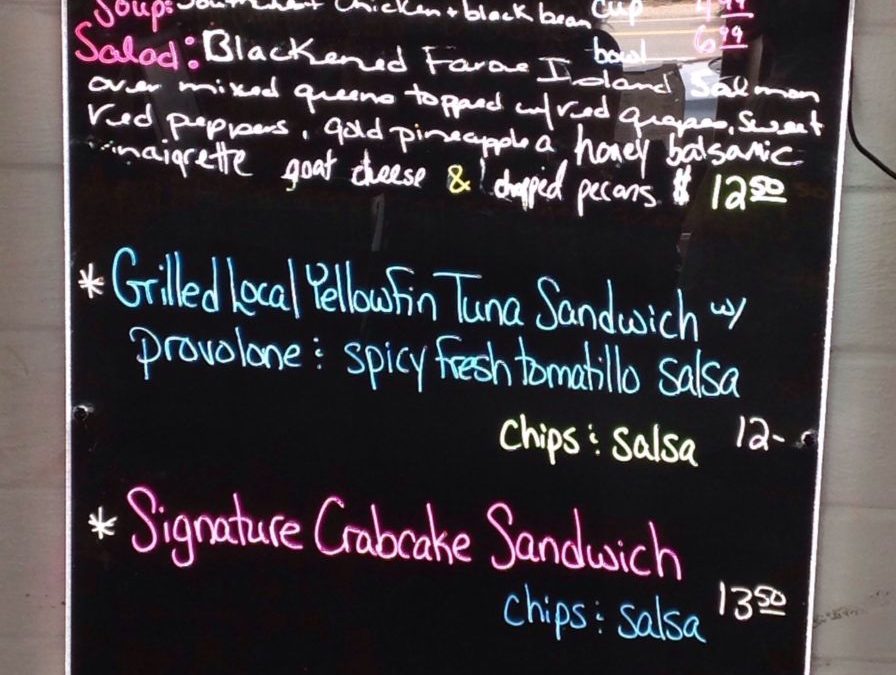 Soup: Southwest Chicken + black bean cup 4 99
bowl 6 99
Salad: Blackened Faroe Island Salmon
over mixed greens topped w/ red grapes, sweet
red peppers, gold pineapple a honey balsamic
vinaigrette goat cheese & chopped pecans $ 12 50
* Grilled Local Yellowfin Tuna Sandwich w/
provolone & spicy fresh tomatillo salsa
chips & salsa 12-
* Signature Crabcake Sandwich
chips & salsa 13 50